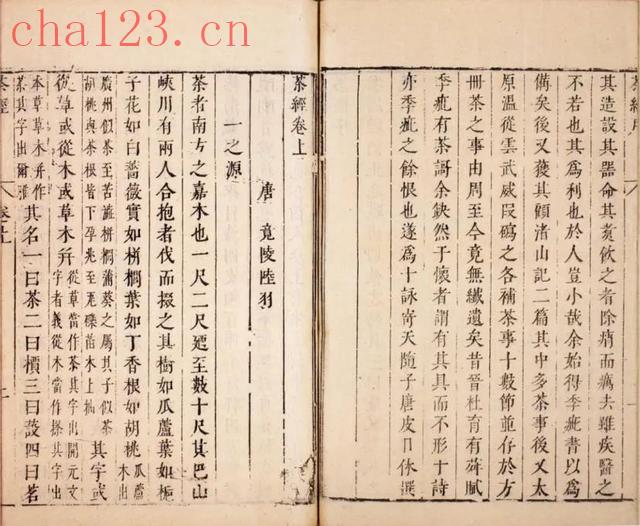 cha123.cn
茶經序
其造設其器命其煑飲之者除痟而癘去雖疾醫之
不若也其爲利也於人豈小哉余始得季疵書以爲
備矣後又獲其顧渚山記二篇其中多茶事後又太
原溫從雲武威段碣之各補茶事十數節並存於方
冊茶之事由周至今竟無纖遺矣昔晉杜育有荈賦
季疵有茶謌余缺然于懷者謂有其具而不形于詩
亦季疵之餘恨也遂爲十詠寄天隨子唐皮日休撰
茶經卷上
唐 竟陵陸羽
一之源
茶者南方之嘉木也一尺二尺廼至數十尺其巴山
峽川有兩人合抱者伐而掇之其樹如瓜蘆葉如梔
子花如白薔薇實如栟櫚葉如丁香根如胡桃
瓜蘆
木出
廣州似茶至苦澁栟櫚蒲葵之屬其子似茶
胡桃與茶根皆下孕兆至瓦礫苗木上抽
其字或
從草或從木或草木并
從草當作茶其字出開元文
字者義從木當作搽其字出
本草草木并作
茶其字出爾雅
其名一曰茶二曰檟三曰蔎四曰茗
茶經
卷上